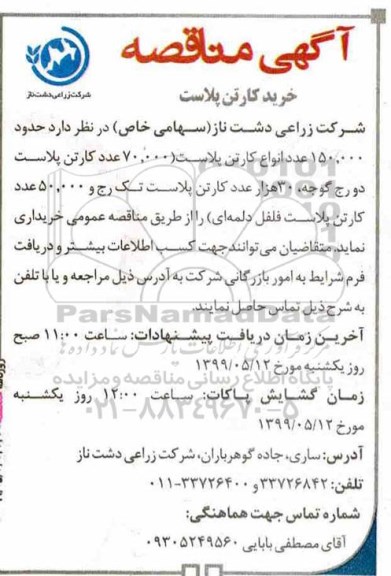 آگهی مناقصه
شرکت زراعی دشت ناز
خرید کارتن پلاست
شرکت زراعی دشت ناز (سهامی خاص) در نظر دارد حدود
۱۵۰،۰۰۰ عدد انواع کارتن پلاست (۷۰،۰۰۰ عدد کارتن پلاست
دو رج گوجه، ۳۰هزار عدد کارتن پلاست تک رج و ۵۰،۰۰۰ عدد
کارتن پلاست فلفل دلمه‌ای) را از طریق مناقصه عمومی خریداری
نماید. متقاضیان می‌توانند جهت کسب اطلاعات بیشتر و دریافت
فرم شرایط به امور بازرگانی شرکت به آدرس ذیل مراجعه و یا با تلفن
به شرح ذیل تماس حاصل نمایند.
ParsNamadData
آخرین زمان دریافت پیشنهادات: ساعت ۱۱:۰۰ صبح
روز یکشنبه مورخ ۱۳۹۹/۰۵/۱۲
پایگاه اطلاع رسانی مناقصه و مزایده
زمان گشایش پاکات: ساعت ۱۲:۰۰ روز یکشنبه
۰۲۱-۸۸۳۴۹۶۷۰-۵
مورخ ۱۳۹۹/۰۵/۱۲
آدرس: ساری، جاده گوهرباران، شرکت زراعی دشت ناز
تلفن: ۳۳۷۲۶۸۴۲ و ۳۳۷۲۶۴۰۰-۰۱۱
شماره تماس جهت هماهنگی:
آقای مصطفی بابایی ۰۹۳۰۵۲۴۹۵۶۰